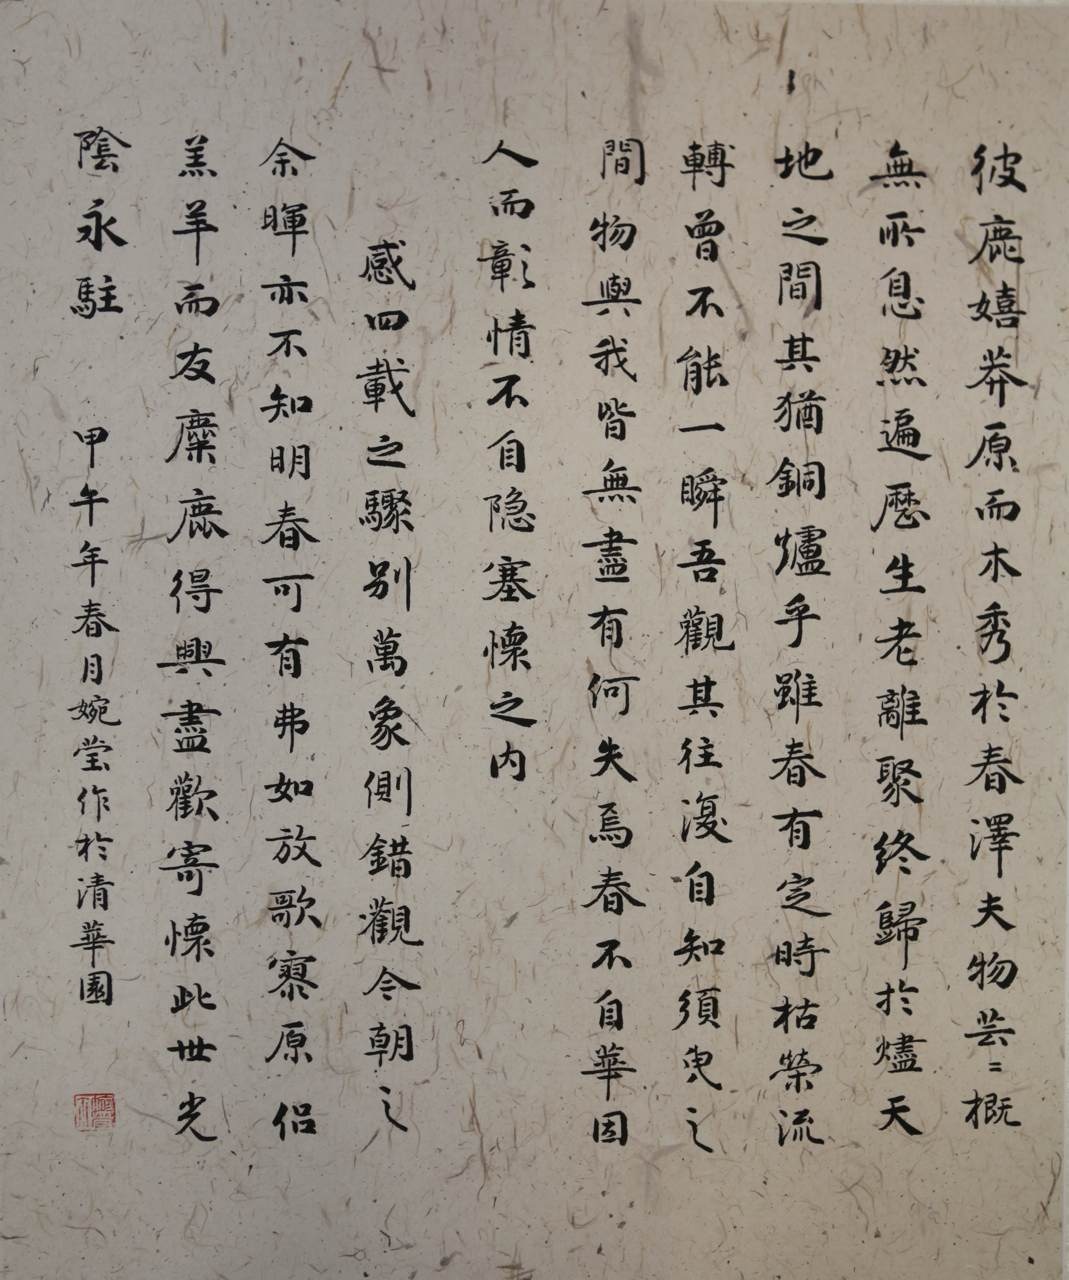 彼鹿嬉莽原而木秀於春澤夫物芸〻概
無所息然遍歷生老離聚終歸於燼天
地之間其猶銅爐乎雖春有定時枯榮流
轉曾不能一瞬吾觀其往復自知須臾之
間物與我皆無盡有何失焉春不自華因
人而彰情不自隐塞懷之内
感四載之驟别萬象側錯觀今朝之
余暉亦不知明春可有弗如放歌寮原侣
羔羊而友麋鹿得興盡歡寄懷此世光
陰永駐 甲午年春月婉莹作於清華園